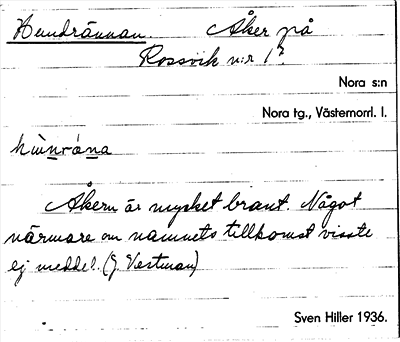 Hundrännan. Åker på
Rossvik n:r 1?
Nora s:n
Nora tg., Västernorrl. l.
Åkern är mycket brant. Något
närmare om namnets tillkomst visste
ej meddel. (J. Vestman)
Sven Hiller 1936.